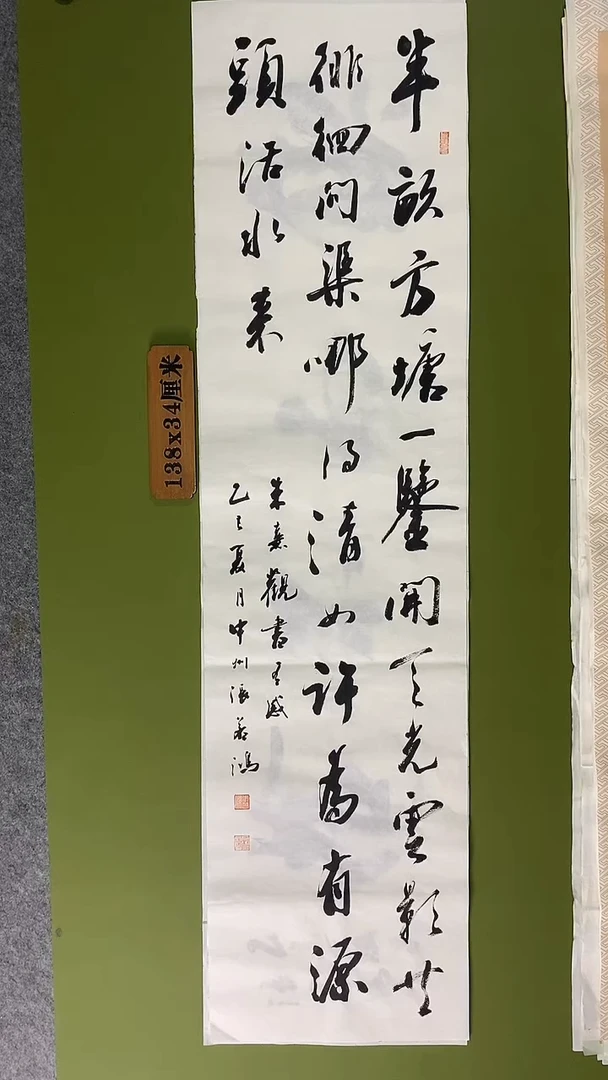 半畝方塘一鑒開天光雲影共
徘徊問渠哪得清如許為有源
頭活水來
朱熹觀書有感
乙巳夏月中州張若鴻
138x34厘米